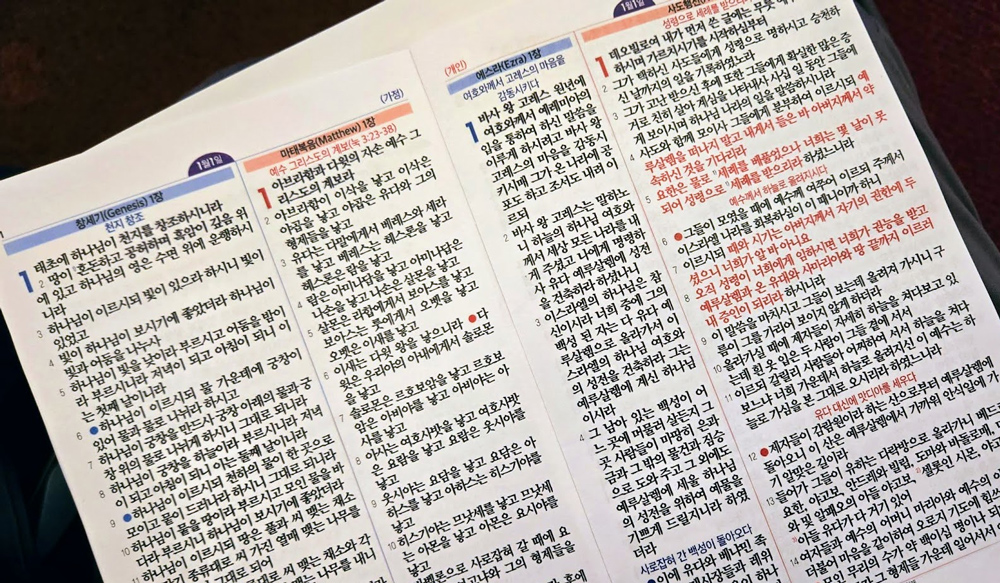 1월1일
창세기(Genesis) 1장
천지 창조
1 태초에 하나님이 천지를 창조하시니라
2 땅이 ¹⁾혼돈하고 공허하며 흑암이 깊음 위
에 있고 하나님의 영은 수면 위에 운행하시
니라
3 하나님이 이르시되 빛이 있으라 하시니 빛이
있었고
4 빛이 하나님이 보시기에 좋았더라 하나님이
빛과 어둠을 나누사
5 하나님이 빛을 낮이라 부르시고 어둠을 밤이
라 부르시니라 저녁이 되고 아침이 되니 이
는 첫째 날이니라
6 하나님이 이르시되 물 가운데에 궁창이
있어 물과 물로 나뉘라 하시고
7 하나님이 궁창을 만드사 궁창 아래의 물과 궁
창 위의 물로 나뉘게 하시니 그대로 되니라
8 하나님이 궁창을 하늘이라 부르시니라 저녁
이 되고 아침이 되니 이는 둘째 날이니라
9 하나님이 이르시되 천하의 물이 한 곳으로
모이고 뭍이 드러나라 하시니 그대로 되니라
10 하나님이 뭍을 땅이라 부르시고 모인 물을 바
다라 부르시니 하나님이 보시기에 좋았더라
11 하나님이 이르시되 땅은 풀과 씨 맺는 채소
와 각기 종류대로 씨 가진 열매 맺는 나무를
(가정)
마태복음(Matthew) 1장
예수 그리스도의 계보(눅 3:23-38)
1 아브라함과 다윗의 자손 예수 그
리스도의 계보라
2 아브라함이 이삭을 낳고 이삭은
야곱을 낳고 야곱은 유다와 그의
형제들을 낳고
3 유다는 다말에게서 베레스와 세라
를 낳고 베레스는 헤스론을 낳고
헤스론은 람을 낳고
4 람은 아미나답을 낳고 아미나답은
나손을 낳고 나손은 살몬을 낳고
5 살몬은 라합에게서 보아스를 낳고
보아스는 룻에게서 오벳을 낳고
오벳은 이새를 낳고
6 이새는 다윗 왕을 낳으니라 다
윗은 우리야의 아내에게서 솔로몬
을 낳고
7 솔로몬은 르호보암을 낳고 르호보
암은 아비야를 낳고 아비야는 아
사를 낳고
8 아사는 여호사밧을 낳고 여호사밧
은 요람을 낳고 요람은 웃시야를
낳고
9 웃시야는 요담을 낳고 요담은 아
하스를 낳고 아하스는 히스기야를
낳고
10 히스기야는 므낫세를 낳고 므낫세
는 아몬을 낳고 아몬은 요시야를
낳고
(개인)
에스라(Ezra) 1장
여호와께서 고레스의 마음을
감동시키다
1 바사 왕 고레스 원년에
여호와께서 예레미야의
입을 통하여 하신 말씀을
이루게 하시려고 바사 왕
고레스의 마음을 감동시
키시매 그가 온 나라에 공
포도 하고 조서도 내려 이
르되
2 바사 왕 고레스는 말하노
니 하늘의 하나님 여호와
께서 세상 모든 나라를 내
게 주셨고 나에게 명령하
사 유다 예루살렘에 성전
을 건축하라 하셨나니
3 이스라엘의 하나님은 참
신이시라 너희 중에 그의
백성 된 자는 다 유다 예
루살렘으로 올라가서 이
스라엘의 하나님 여호와
의 성전을 건축하라 그는
예루살렘에 계신 하나님
이시라
4 그 남아 있는 백성이 어
느 곳에 머물러 살든지 그
곳 사람들이 마땅히 은과
금과 그 밖의 물건과 짐승
으로 도와 주고 그 외에도
예루살렘에 세울 하나님
의 성전을 위하여 예물을
기쁘게 드릴지니라 하였
더라
사로잡혀 간 백성이 돌아오다
1월1일
성령으로 세례를 받으리라
1 데오빌로여 내가 먼저 쓴 글에는 무릇 예수께서
하시며 가르치시기를 시작하심부터
2 그가 택하신 사도들에게 성령으로 명하시고 승천하
신 날까지의 일을 기록하였노라
3 그가 고난 받으신 후에 또한 그들에게 확실한 많은 증
거로 친히 살아 계심을 나타내사 사십 일 동안 그들에
게 보이시며 하나님 나라의 일을 말씀하시니라
4 사도와 함께 모이사 그들에게 분부하여 이르시되 예
루살렘을 떠나지 말고 내게서 들은 바 아버지께서 약
속하신 것을 기다리라
5 요한은 물로 ¹⁾세례를 베풀었으나 너희는 몇 날이 못
되어 성령으로 ¹⁾세례를 받으리라 하셨느니라
예수께서 하늘로 올려지시다
6 그들이 모였을 때에 예수께 여쭈어 이르되 주께서
이스라엘 나라를 회복하심이 이 때니이까 하니
7 이르시되 때와 시기는 아버지께서 자기의 권한에 두
셨으니 너희가 알 바 아니요
8 오직 성령이 너희에게 임하시면 너희가 권능을 받고
예루살렘과 온 유대와 사마리아와 땅 끝까지 이르러
내 증인이 되리라 하시니라
9 이 말씀을 마치시고 그들이 보는데 올려져 가시니 구
름이 그를 가리어 보이지 않게 하더라
10 올라가실 때에 제자들이 자세히 하늘을 쳐다보고 있
는데 흰 옷 입은 두 사람이 그들 곁에 서서
11 이르되 갈릴리 사람들아 어찌하여 서서 하늘을 쳐다
보느냐 너희 가운데서 하늘로 올려지신 이 예수는 하
늘로 가심을 본 그대로 오시리라 하였느니라
유다 대신에 맛디아를 세우다
12 제자들이 감람원이라 하는 산으로부터 예루살렘에
돌아오니 이 산은 예루살렘에서 가까워 안식일에 가
기 알맞은 길이라
13 들어가 그들이 유하는 다락방으로 올라가니